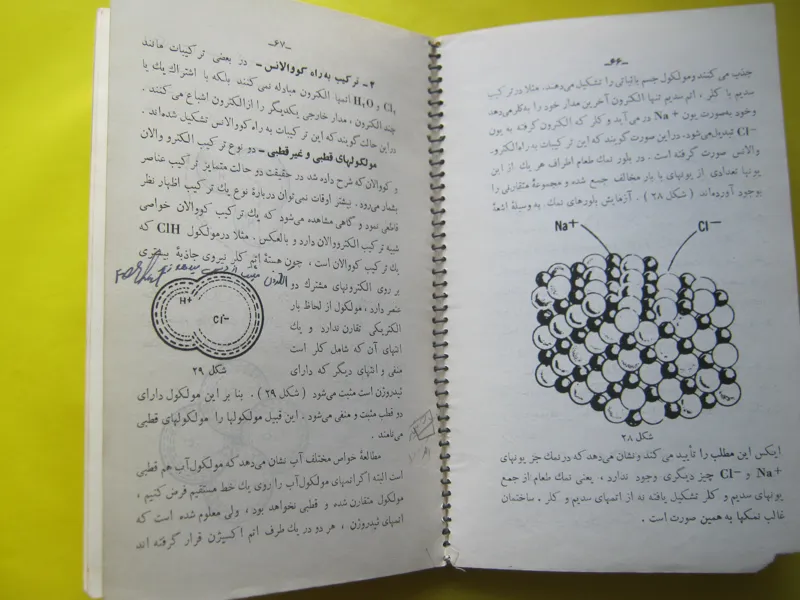 -۶۶-
جذب می کنند ومولکول جسم یاثباتی را تشکیل می‌دهند. مثلا درترکیب
سدیم با کلر ، اتم سدیم تنها الکترون آخرین مدار خود را به‌کلر می‌دهد
وخود به‌صورت یون Na+ در می‌آید و کلر که الکترون گرفته به یون
Cl− تبدیل می‌شود . دراین صورت گویند که این ترکیبات به راه الکترو.
والانس صورت گرفته است . در بلور نمک طعام اطراف هر یک از این
یونها تعدادی از یونهای با بار مخالف جمع شده و مجموعهٔ متقارنی را
بوجود آورده‌اند ( شکل ۲۸ ) . آزمایش بلورهای نمک به وسیلهٔ اشعهٔ
Na+ Cl−
شکل ۲۸
ایکس این مطلب را تأیید می کند ونشان می‌دهد که درنمک جز یونهای
Na+ و Cl− چیز دیگری وجود ندارد . یعنی نمک طعام از جمع
یونهای سدیم و کلر تشکیل یافته نه از اتمهای سدیم و کلر . ساختمان
غالب نمکها به همین صورت است .
-۶۷-
۲- ترکیب به راه کووالانس - در بعضی ترکیبات مانند
Cl۲ و H۲O اتمها الکترون مبادله نمی‌کنند بلکه با اشتراک یک یا
چند الکترون ، مدار خارجی یکدیگر را ازالکترون اشباع می‌کنند .
دراین حالت گویند که این ترکیبات به راه کووالانس تشکیل شده‌اند .
مولکولهای قطبی و غیر قطبی - دو نوع ترکیب الکترو والان
و کووالان که شرح داده شد در حقیقت دو حالت متمایز ترکیب عناصر
بشمار می‌رود . بیشتر اوقات نمی‌توان دربارهٔ نوع یک ترکیب اظهار نظر
قاطعی نمود و گاهی مشاهده می‌شود که یک ترکیب کووالان خواصی
شبیه ترکیب الکترووالان دارد و بالعکس . مثلا درمولکول ClH که
یک ترکیب کووالان است ، چون هستهٔ اتم کلر نیروی جاذبهٔ بیشتری
بر روی الکترونهای مشترک دو
عنصر دارد ، مولکول از لحاظ بار
الکتریکی تقارن ندارد و یک
انتهای آن که شامل کلر است
منفی و انتهای دیگر که دارای
H+ Cl−
شکل ۲۹
ئیدروژن است مثبت می‌شود ( شکل ۲۹ ) . بنا بر این مولکول دارای
دو قطب مثبت و منفی می‌شود . این قبیل مولکولها را مولکولهای قطبی
می‌نامند .
مطالعهٔ خواص مختلف آب نشان می‌دهد که مولکول‌آب هم قطبی
است البته اگر اتمهای مولکول‌آب را روی یک خط مستقیم فرض کنیم ،
مولکول متقارن شده و قطبی نخواهد بود ، ولی معلوم شده است که
اتمهای ئیدروژن ، هر دو در یک طرف اتم اکسیژن قرار گرفته اند